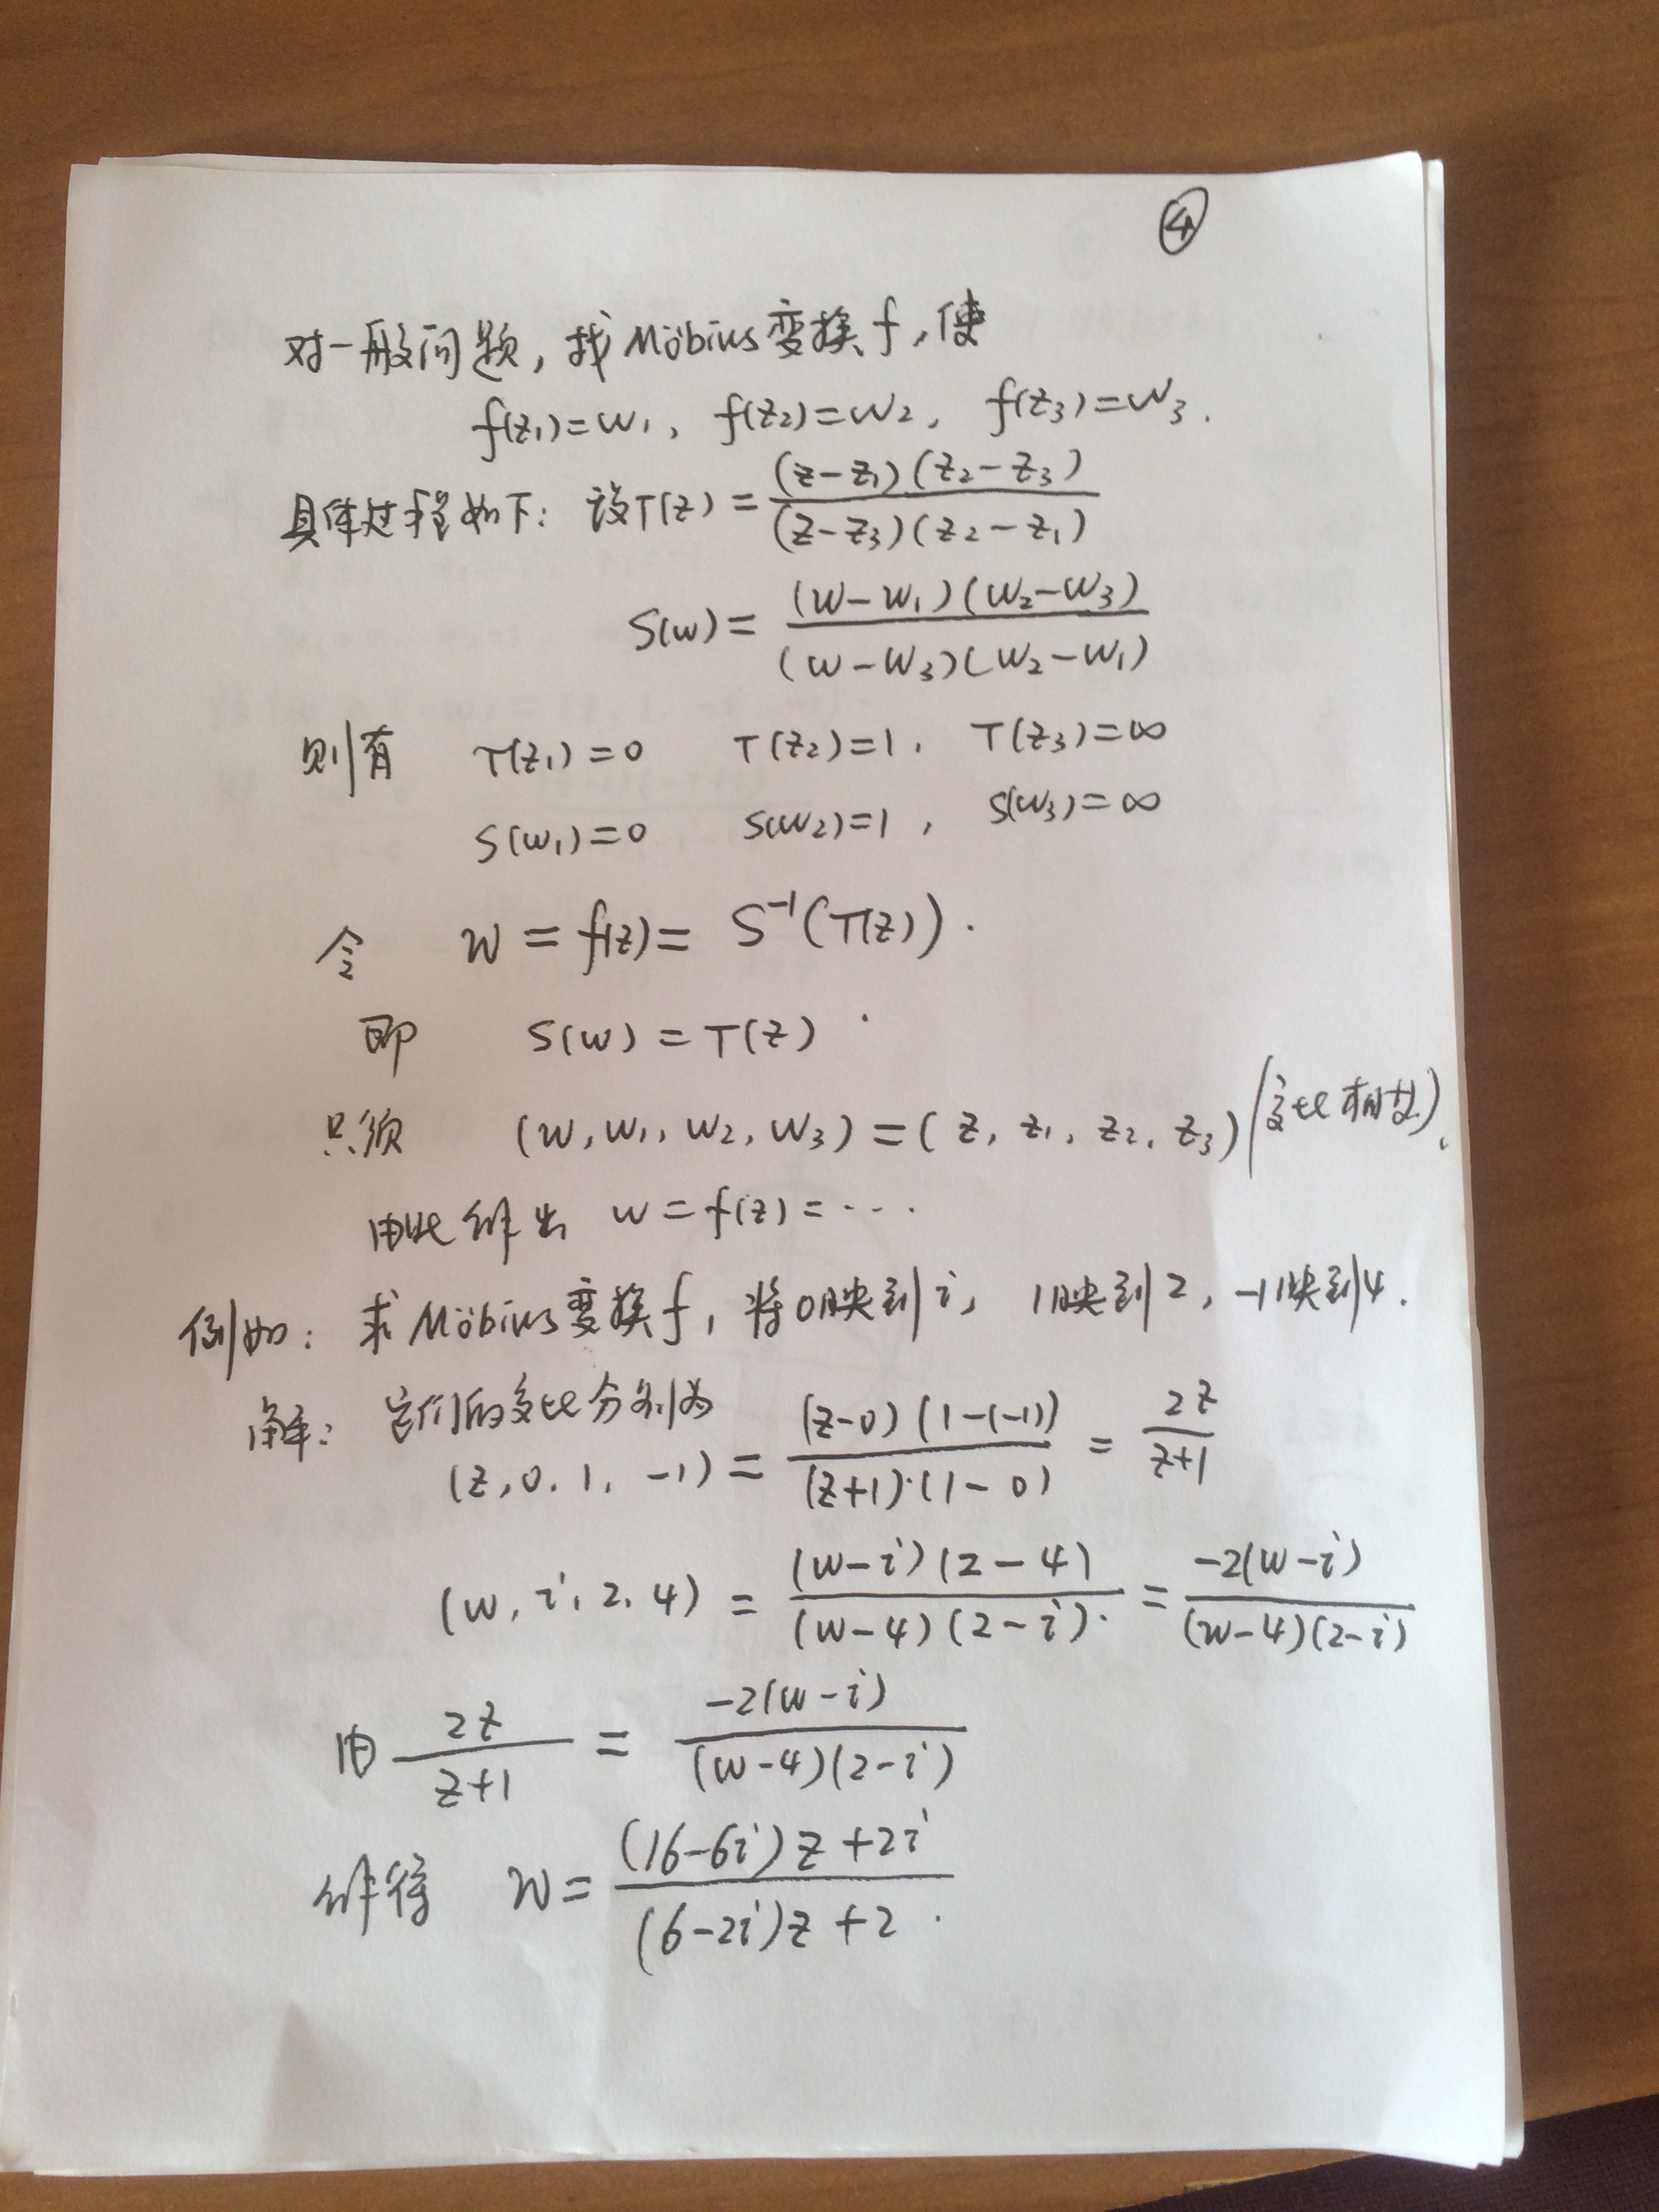 ④
对一般问题，找Möbius变换f，使
f(z₁)=w₁, f(z₂)=w₂, f(z₃)=w₃.
具体过程如下：设T(z) = (z-z₁)(z₂-z₃) / (z-z₃)(z₂-z₁)
S(w) = (w-w₁)(w₂-w₃) / (w-w₃)(w₂-w₁)
则有 T(z₁)=0 T(z₂)=1, T(z₃)=∞
S(w₁)=0 S(w₂)=1, S(w₃)=∞
令 w = f(z) = S⁻¹(T(z)).
即 S(w) = T(z).
只须 (w, w₁, w₂, w₃) = (z, z₁, z₂, z₃) (交比相等).
由此解出 w = f(z) = ...
例如：求Möbius变换f，将0映到i, 1映到2, -1映到4.
解：它们的交比分别为
(z, 0, 1, -1) = (z-0)(1-(-1)) / (z+1)·(1-0) = 2z / z+1
(w, i, 2, 4) = (w-i)(2-4) / (w-4)(2-i) = -2(w-i) / (w-4)(2-i)
由 2z / z+1 = -2(w-i) / (w-4)(2-i)
解得 w = (16-6i)z+2i / (6-2i)z+2.